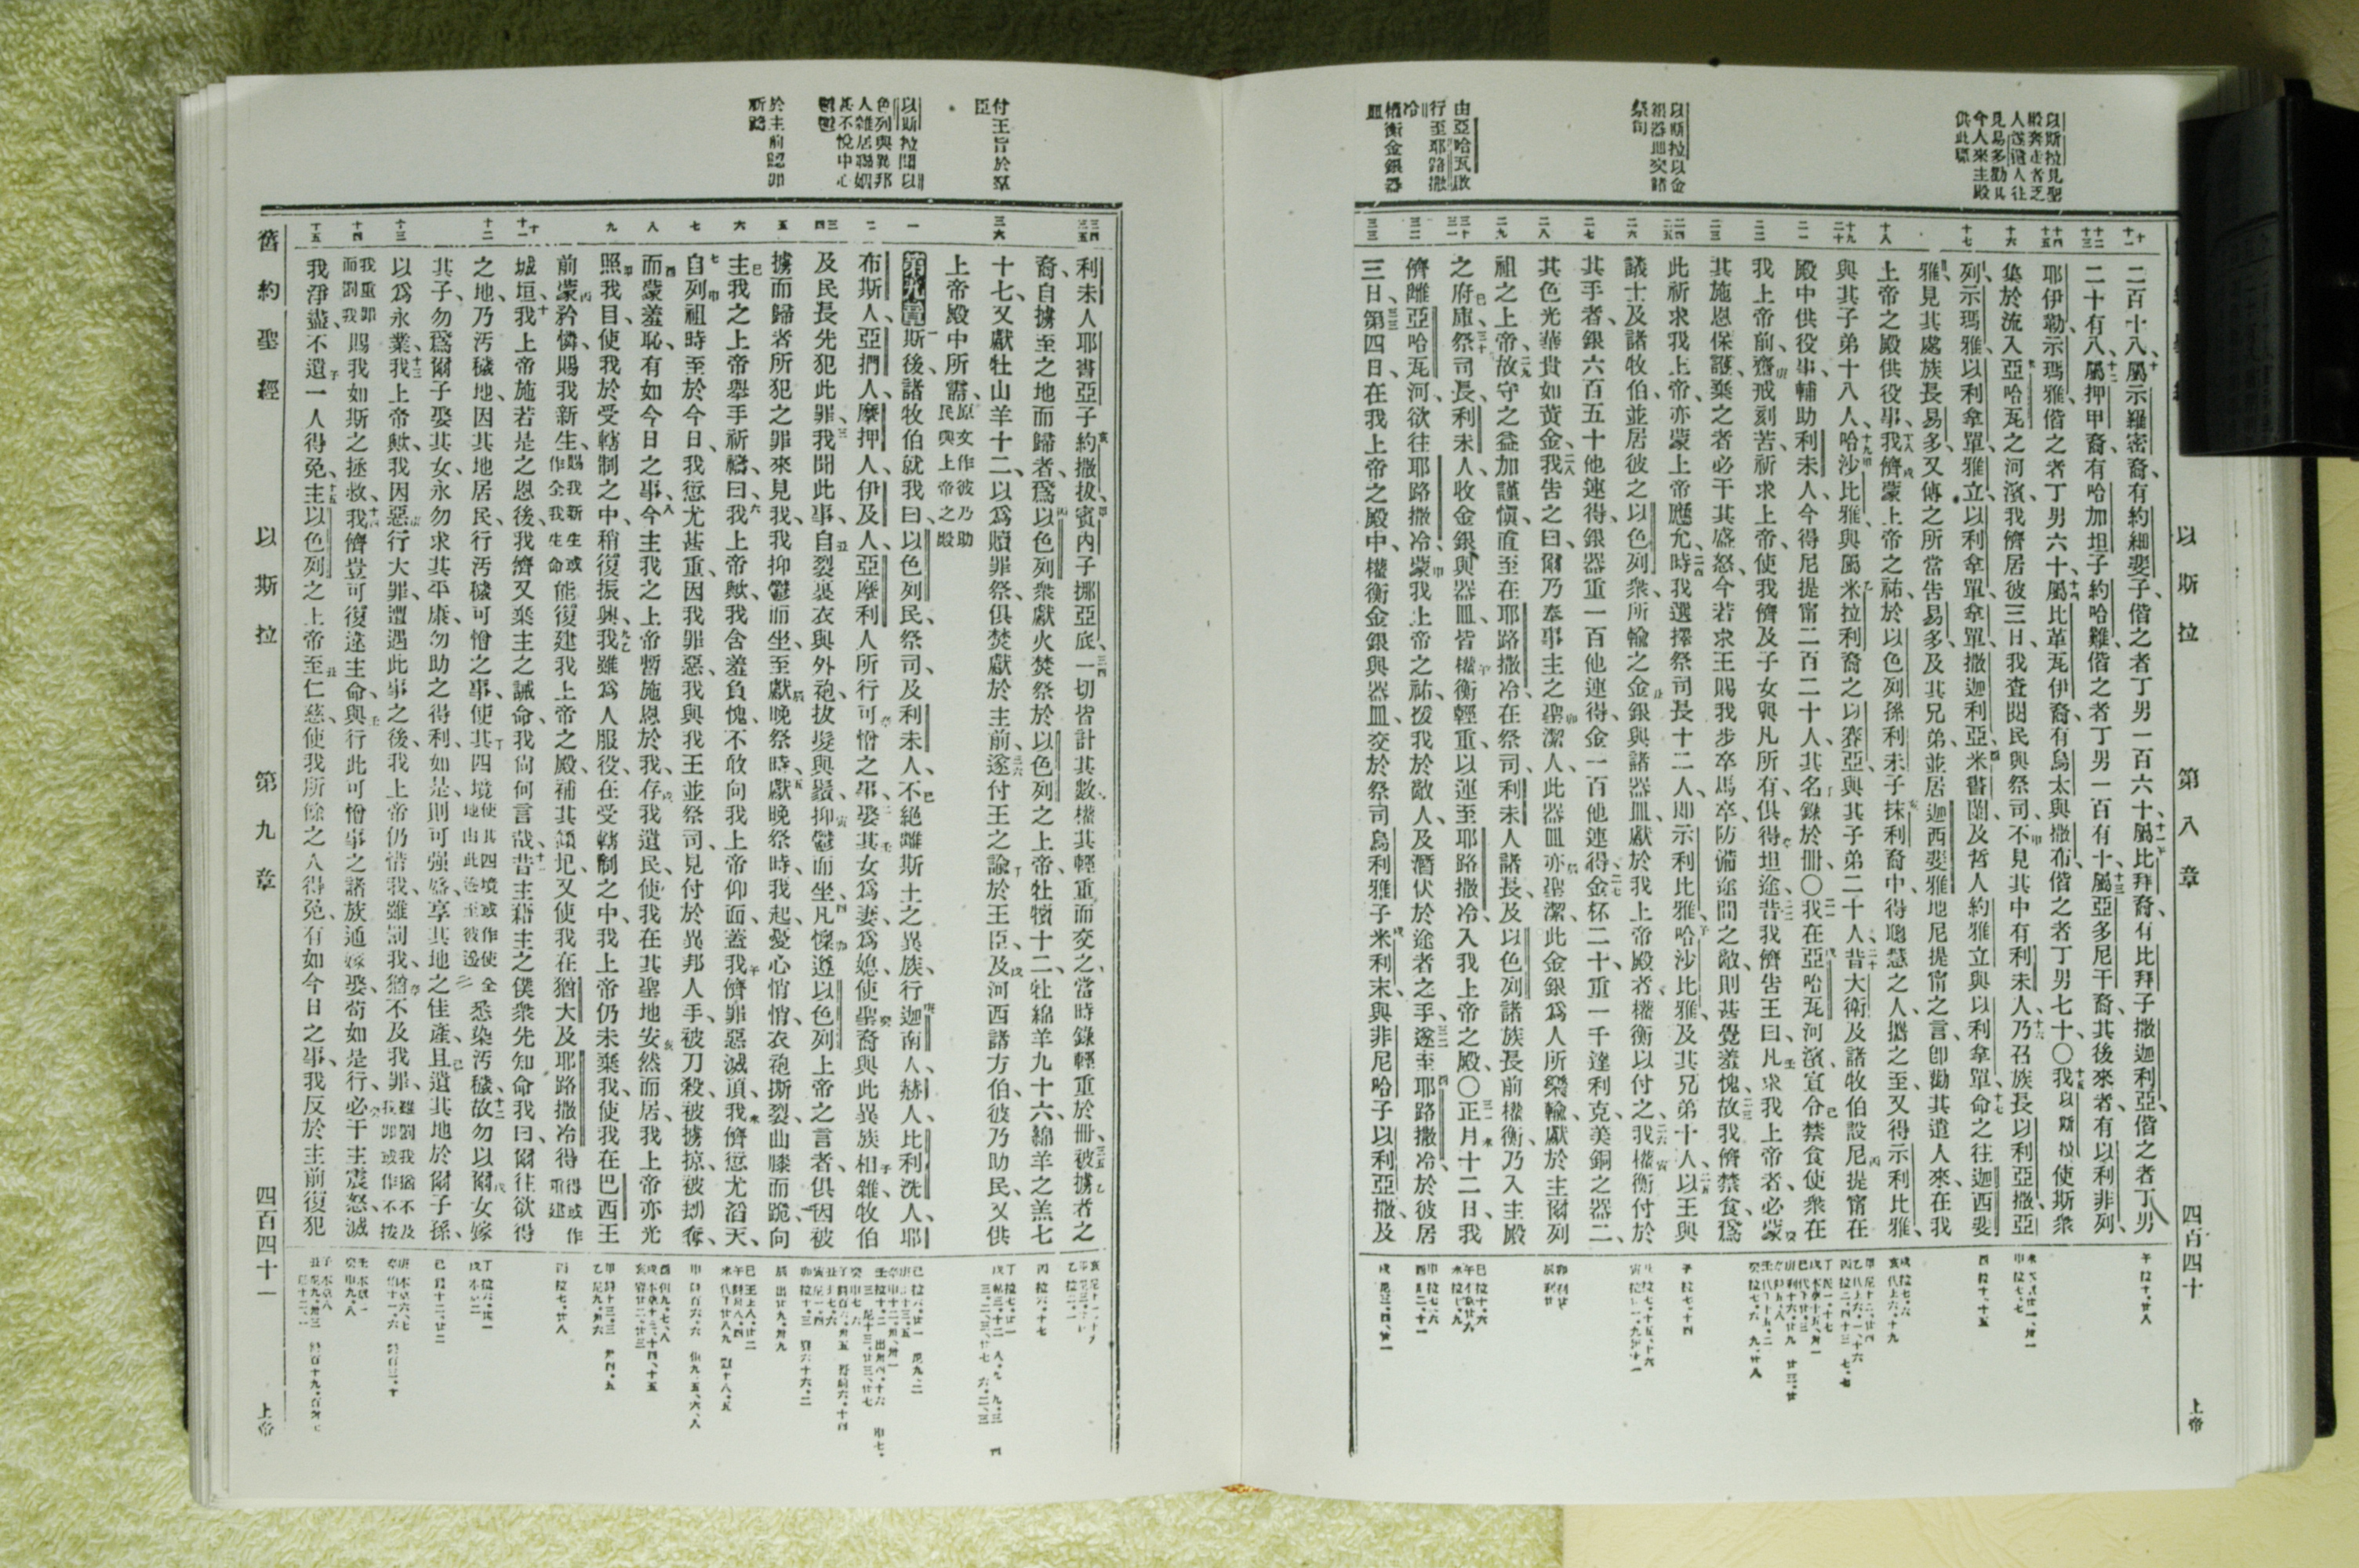 以斯拉見聖
殿奔走者乏
人遂遣人往
見易多勸其
令人來主殿
供此職
以斯拉以金
銀器皿交諸
祭司
由亞哈瓦啟
行至耶路撒
冷
權衡金銀器
皿
以斯拉
第八章
四百四十
上帝
二百十八、屬示羅密裔、有約細斐子、偕之者丁男一百六十、屬比拜裔、有比拜子撒迦利亞、偕之者丁男
二十有八、屬押甲裔、有哈加坦子約哈難、偕之者丁男一百有十、屬亞多尼干裔、其後來者、有以利非列、
耶伊勒、示瑪雅、偕之者丁男六十、屬比革瓦伊裔、有烏太與撒布、偕之者丁男七十、〇我以斯拉使斯衆
集於流入亞哈瓦之河濱、我儕居彼三日、我查閱民與祭司、不見其中有利未人、乃召族長以利亞撒、亞
列、示瑪雅、以利拿單、雅立、以利拿單、拿單、撒迦利亞、米書蘭、及哲人約雅立與以利拿單、命之往迦西斐
雅、見其處族長易多、又傳之所當告易多、及其兄弟、並居迦西斐雅地尼提甯之言、卽勸其遣人來、在我
上帝之殿供役事、我儕蒙上帝之祐、於以色列孫利未子抹利裔中、得聰慧之人、攜之至、又得示利比雅、
與其子弟十八人、哈沙比雅、與屬米拉利裔之以賽亞、與其子弟二十人、昔大衛及諸牧伯設尼提甯、在
殿中供役事輔助利未人、今得尼提甯二百二十人、其名錄於册、〇我在亞哈瓦河濱、宣令禁食、使衆在
我上帝前、齋戒刻苦、祈求上帝、使我儕及子女與凡所有、俱得坦途、昔我儕告王曰、凡求我上帝者、必蒙
其施恩保護、棄之者必干其盛怒、今若求王賜我步卒馬卒、防備途間之敵、則甚覺羞愧、故我儕禁食、爲
此祈求我上帝、亦蒙上帝應允、時我選擇祭司長十二人、卽示利比雅、哈沙比雅、及其兄弟十人、以王與
議士及諸牧伯、並居彼之以色列衆、所輸之金銀與諸器皿、獻於我上帝殿者、權衡以付之、我權衡付於
其手者、銀六百五十他連得、銀器重一百他連得、金一百他連得、金杯二十、重一千達利克、美銅之器二、
其色光華、貴如黃金、我告之曰、爾乃奉事主之聖潔人、此器皿亦聖潔、此金銀爲人所樂輸、獻於主爾列
祖之上帝、故守之益加謹愼、直至在耶路撒冷、在祭司、利未人諸長、及以色列諸族長前權衡、乃入主殿
之府庫、祭司長、利未人、收金銀與器皿、皆權衡輕重、以運至耶路撒冷、入我上帝之殿、〇正月十二日、我
儕離亞哈瓦河、欲往耶路撒冷、蒙我上帝之祐、援我於敵人、及潛伏於途者之手、遂至耶路撒冷、於彼居
三日、第四日、在我上帝之殿中、權衡金銀與器皿、交於祭司烏利雅子米利末、與非尼哈子以利亞撒、及
付王旨於羣
臣
以斯拉聞以
色列與異邦
人雜居聯姻
甚不悅中心
憂鬱
於主前認罪
祈禱
利未人耶書亞子約撒拔、賓內子挪亞底、一切皆計其數、權其輕重而交之、當時錄輕重於册、被擄者之
裔、自擄至之地而歸者、爲以色列衆獻火焚祭於以色列之上帝、牡犢十二、牡綿羊九十六、綿羊之羔七
十七、又獻牡山羊十二、以爲贖罪祭、俱焚獻於主前、遂付王之諭於王臣、及河西諸方伯、彼乃助民、又供
上帝殿中所需、原文作彼乃助民與上帝之殿
第九章 斯後、諸牧伯就我曰、以色列民、祭司、及利未人、不絕離斯土之異族、行迦南人、赫人、比利洗人、耶
布斯人、亞捫人、摩押人、伊及人、亞摩利人所行可憎之事、娶其女爲妻、爲媳、使聖裔與此異族相雜、牧伯
及民長先犯此罪、我聞此事、自裂裏衣與外袍、拔髮與鬚、抑鬱而坐、凡懍遵以色列上帝之言者、俱因被
擄而歸者所犯之罪來見我、我抑鬱而坐、至獻晚祭時、獻晚祭時、我起、憂心悄悄、衣袍撕裂、曲膝而跪、向
主我之上帝舉手祈禱、曰、我上帝歟、我含羞負愧、不敢向我上帝仰面、蓋我儕罪惡滅頂、我儕愆尤滔天、
自列祖時至於今日、我愆尤甚重、因我罪惡、我與我王並祭司、見付於異邦人手、被刀殺、被擄掠、被刧奪、
而蒙羞恥、有如今日之事、今主我之上帝暫施恩於我、存我遺民、使我在其聖地安然而居、我上帝亦光
照我目、使我於受轄制之中、稍復振興、我雖爲人服役、在受轄制之中、我上帝仍未棄我、使我在巴西王
前蒙矜憐、賜我新生、賜我新生或作全我生命能復建我上帝之殿、補其頹圮、又使我在猶大及耶路撒冷得得或作重建
城垣、我上帝施若是之恩後、我儕又棄主之誡命、我尚何言哉、昔主藉主之僕衆先知命我曰、爾往欲得
之地、乃汚穢地、因其地居民、行汚穢可憎之事、使其四境使其四境或作使全地由此邊至彼邊悉染汚穢、故勿以爾女嫁
其子、勿爲爾子娶其女、永勿求其平康、勿助之得利、如是則可强盛、享其地之佳產、且遺其地於爾子孫、
以爲永業、我上帝歟、我因惡行大罪、遭遇此事之後、我上帝仍惜我、雖罰我、猶不及我罪、雖罰我猶不及我罪或作不按
而我重罪罰我賜我如斯之拯救、我儕豈可復違主命、與行此可憎事之諸族通嫁娶、苟如是行、必干主震怒、滅
我淨盡、不遺一人得免、主以色列之上帝至仁慈、使我所餘之人得免、有如今日之事、我反於主前復犯
舊約聖經
以斯拉
第九章
四百四十一
上帝